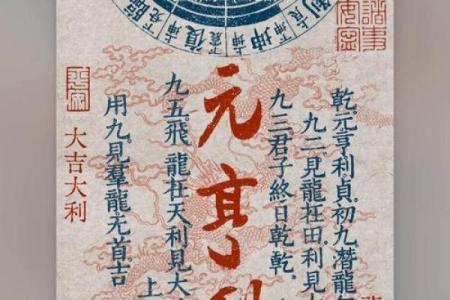 剝艮坤復臨
諸事
乾元亨利,貞。初九潛龍
九二見龍在田,利見
九三君子終日乾乾。
元亨利
九五,飛龍在天,利見大
上
用九,見羣龍无首,吉
大吉大利